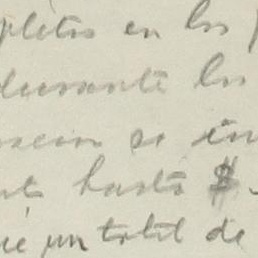 pletos en los
durante los
se in
hasta $
un total de